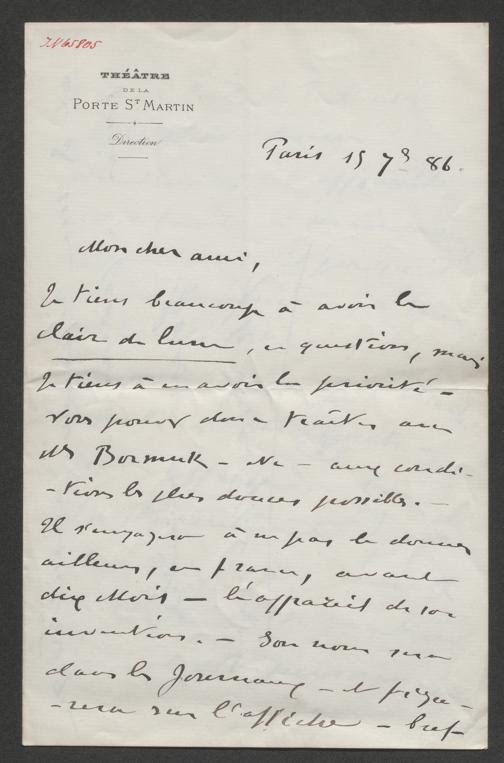 I.N 65805
THÉÂTRE
DE LA
PORTE ST MARTIN
Direction
Paris 15 7e 86.
Mon cher ami,
Je tiens beaucoup à avoir le
clair de lune, en question, mais
Je tiens à en avoir la priorité –
vous pouvez donc traiter avec
Mr – aux condi-
-tions les plus douces possibles. –
Il s'engagera à ne pas le donner
ailleurs, en france, avant
dix Mois – l'appareil de son
invention. – Son nom sera
dans les Journaux – et figu-
-rera sur l'affiche – bref